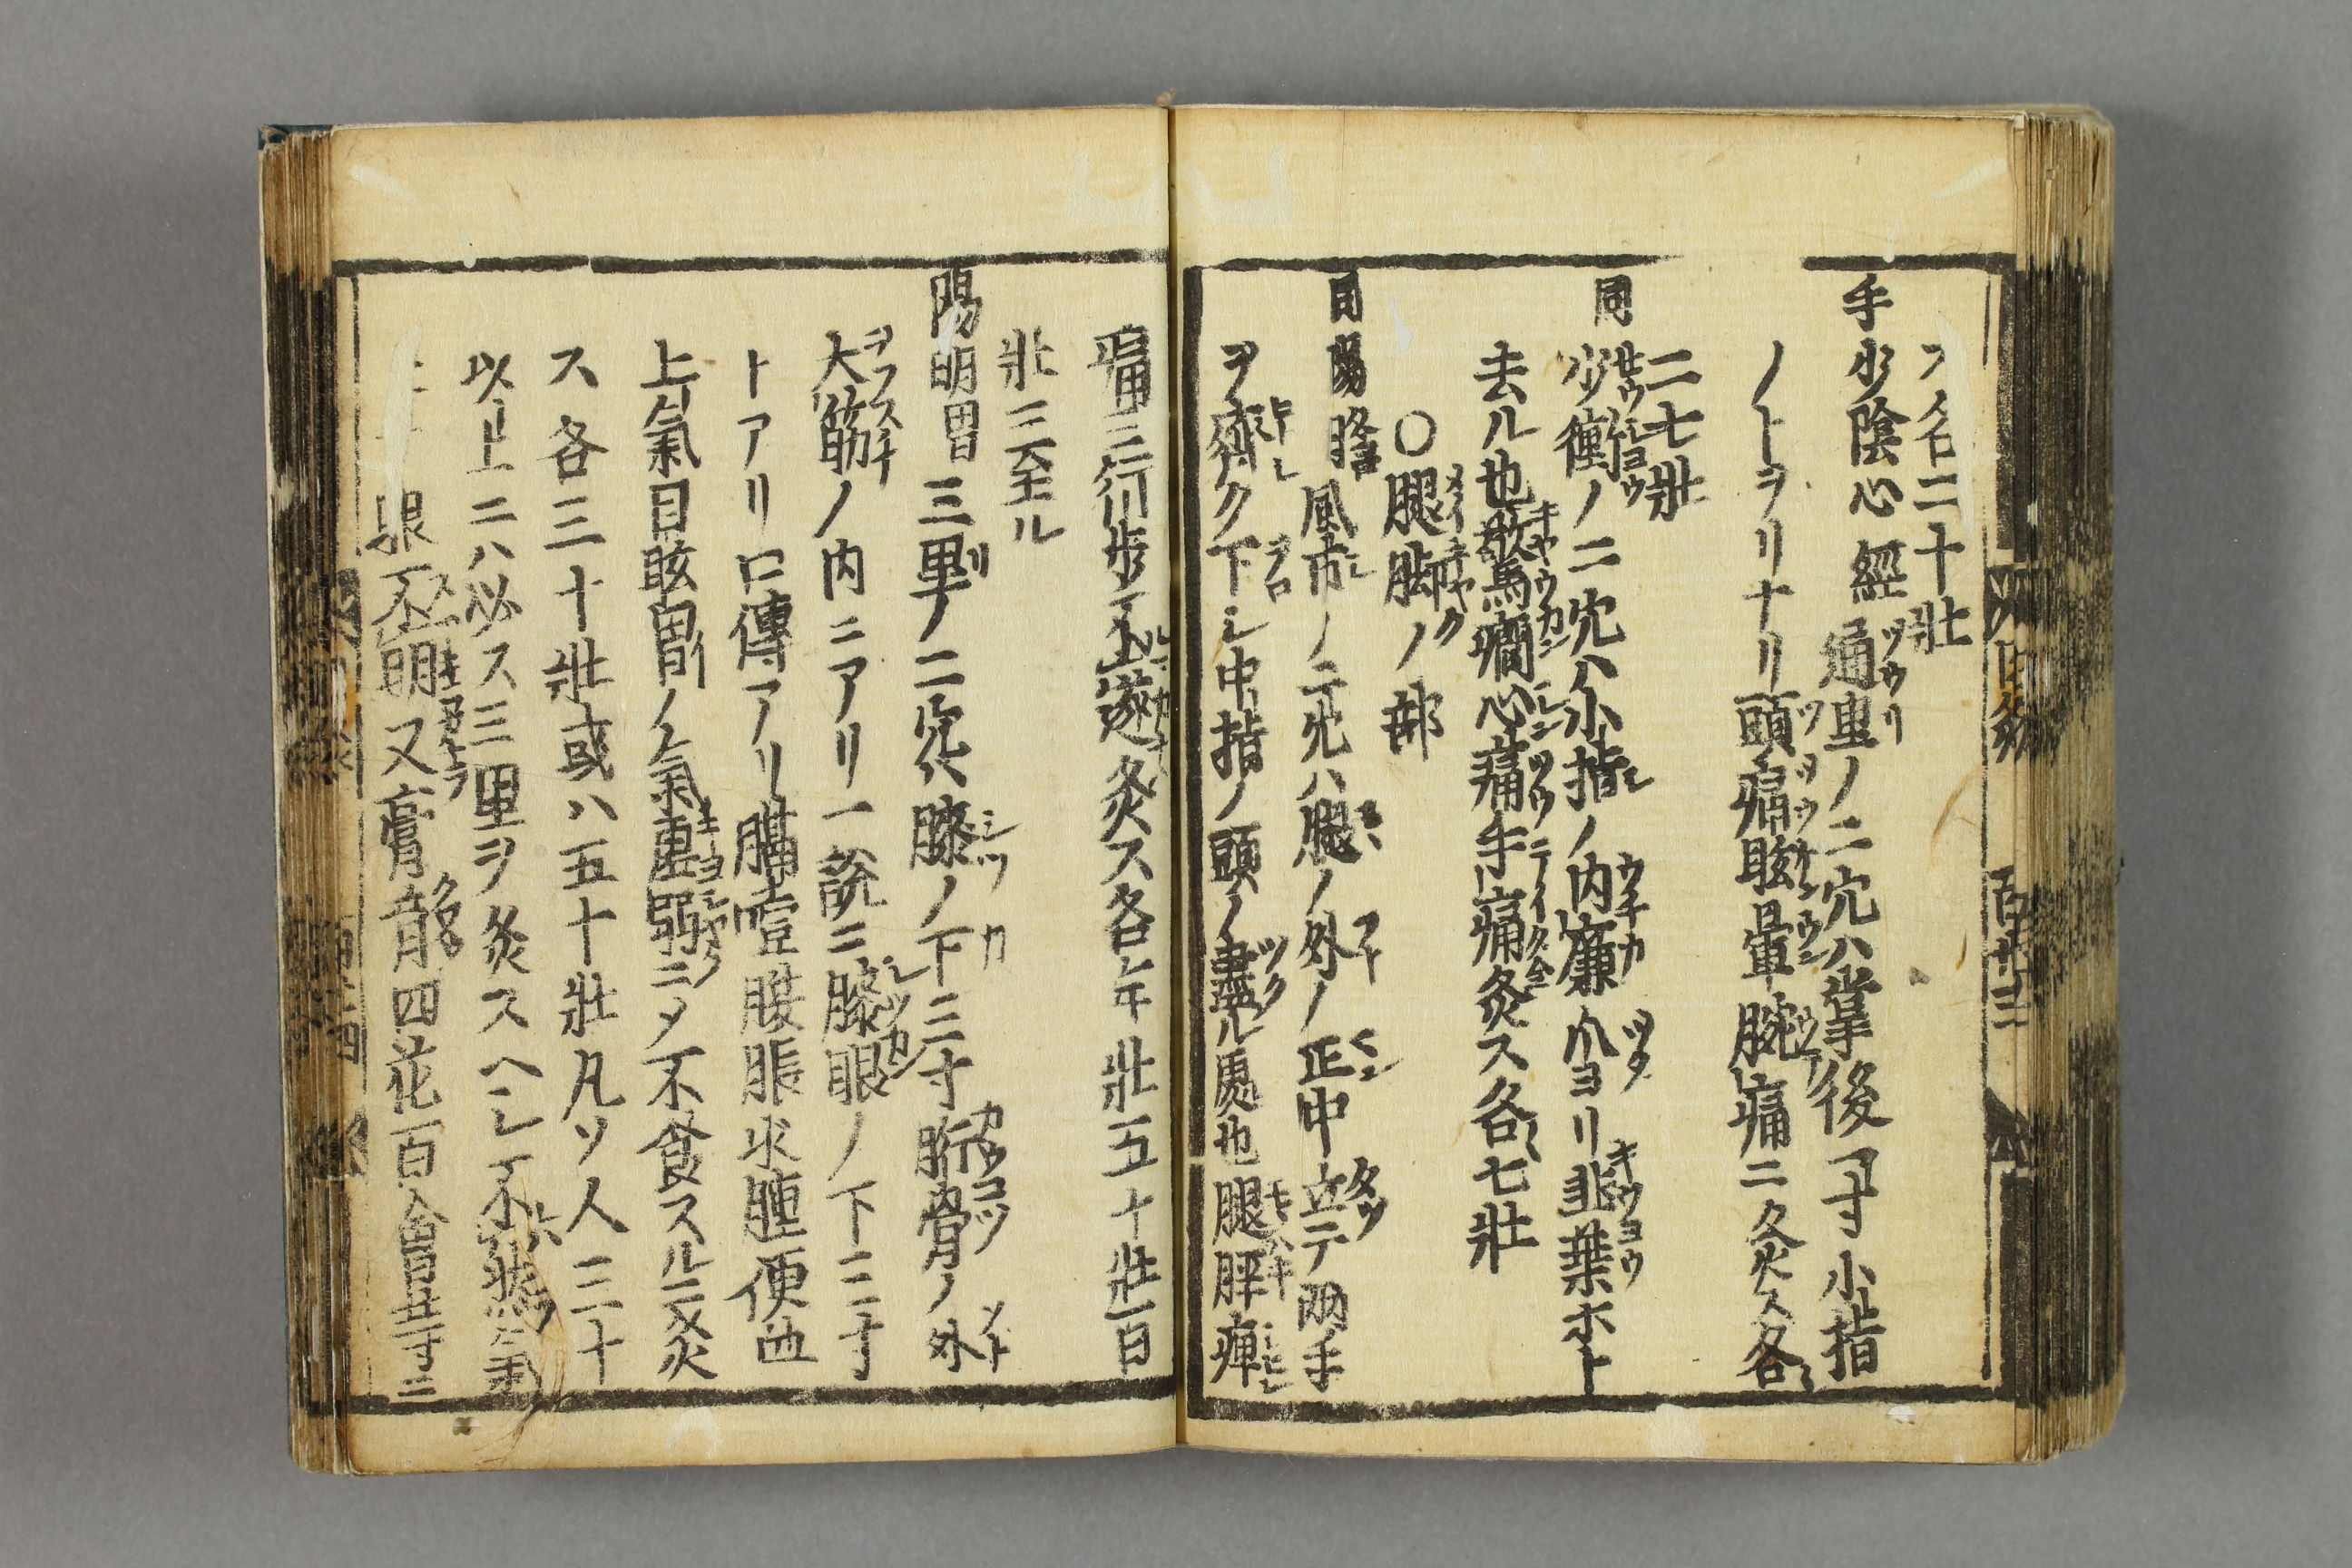 ス各二十壯
手少陰心經 通里ノ二穴ハ掌後一寸小指
ノトヲリナリ頭痛眩暈腕痛ニ灸ス各
二七壯
同 少衝ノ二穴ハ小指ノ内廉爪ヨリ韭葉ホト
去ル也驚癇心痛手痛灸ス各七壯
〇腿脚ノ部
足少陽膽 風市ノ二穴ハ腿ノ外ノ正中立テ兩手
ヲ齊ク下シ中指ノ頭ノ盡ル處也腿胛痺
痛三行歩不遂灸ス各年壯五十壯百
壯三至ル
陽明胃 三里ノ二穴ハ膝ノ下三寸䯒骨ノ外
大筋ノ内ニアリ一説ニ膝眼ノ下三寸
トアリ口傳アリ膈噎腹脹水腫便血
上氣目眩胃ノ氣虚弱ニメ不食スルニ灸
ス各三十壯或ハ五十壯凡ソ人三十
以上ニハ必ス三里ヲ灸スヘシ不然氣
眼不明又膏肓四花百會